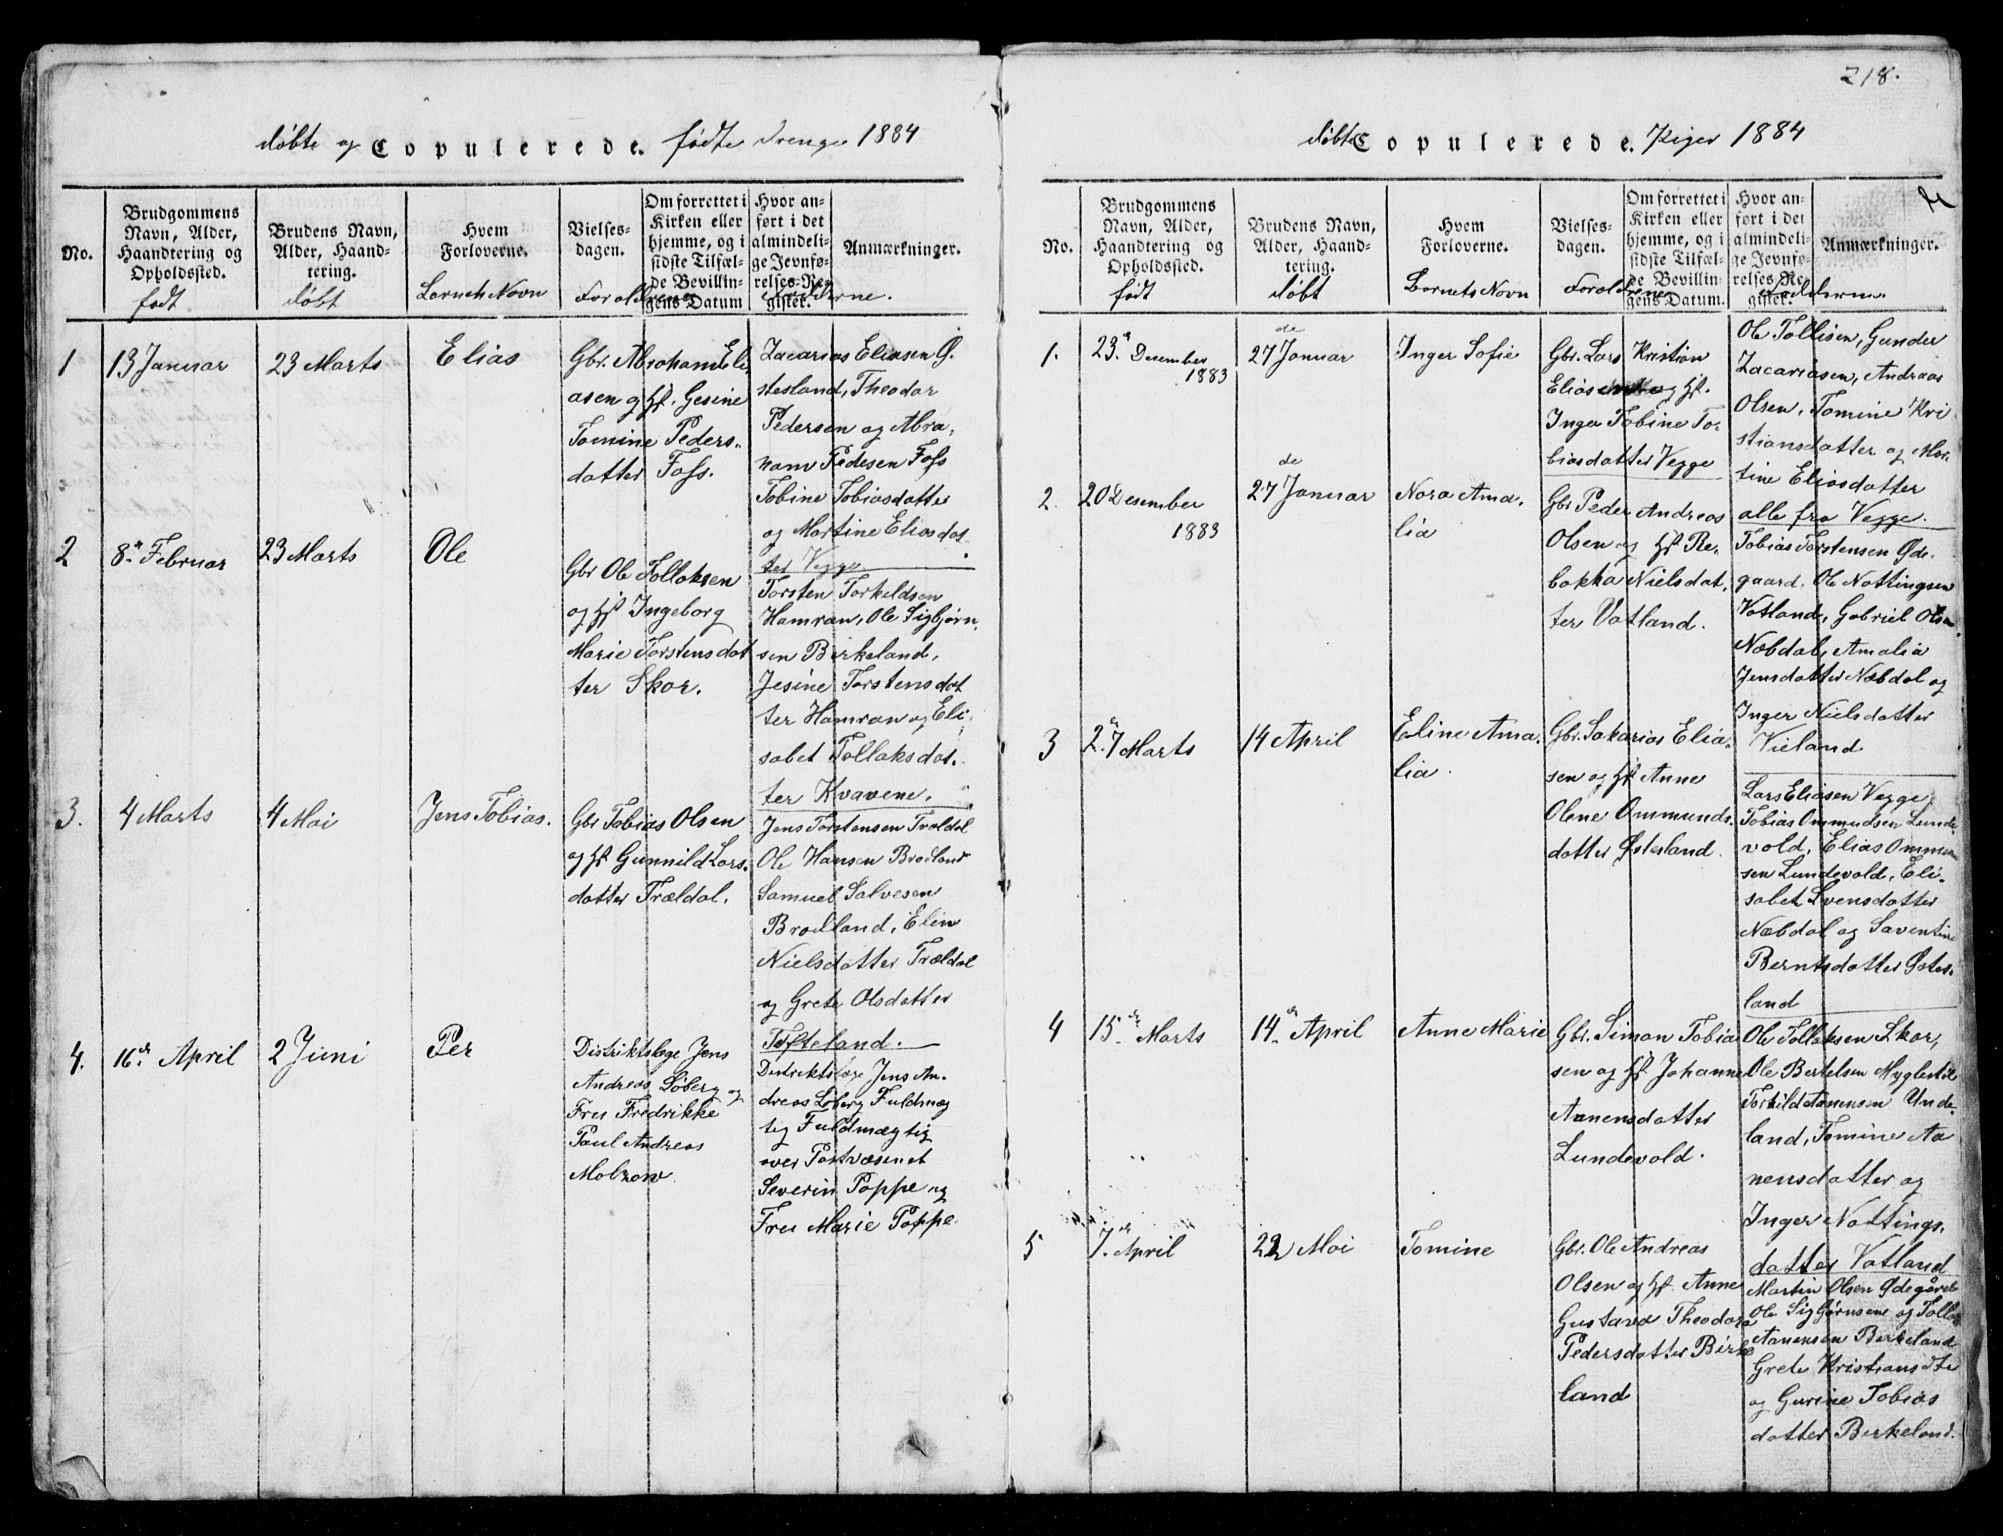 218.
døbte og Copulerede. fødte drenge 1884
No.
Brudgommens
Navn, Alder,
Haandtering og
Opholdssted.
født
Brudens Navn,
Alder, Haand-
tering.
døbt
Hvem
Forloverne.
Barnets Navn
Vielses-
dagen.
Foreldrene
Om forrettet i
Kirken eller
hjemme, og i
sidste Tilfæl-
de Bevillin-
gens Datum
Hvor an-
ført i det
almindeli-
ge Jevnfø-
relses-Re-
gister.
Fadderne.
Anmærkninger.
1
13 Januar
23 Marts
Elias
Gbr. Abraham Eli-
asen og Hst. Gesine
Tomine Peders-
datter Foss.
Zacarias Eliasen Ø-
stesland, Theodor
Pedersen og Abra-
ham Pedesen Foss
Tobine Tobiasdatter
og Martine Eliasdat-
ter Vegge
2
8de Februar
23 Marts
Ole
Gbr Ole Tollaksen
og Hst Ingeborg
Marie Torstensdat
ter Skor.
Torsten Torkildsen
Hamran, Ole Sigbjørn-
sen Birkeland,
Jesine Torstensdat
ter Hamran og Eli-
sabet Tollaksdat-
ter Kvavene.
3.
4 Marts
4 Mai
Jens Tobias.
Gbr Tobias Olsen
og Hst Gunnild Lars-
datter Trældal.
Jens Torstensen Troldal
Ole Hansen Brodland
Samuel Salvesen
Brodland, Elen
Nielsdatter Trældal
og Grete Olsdatter
Tofteland.
4.
16de April
2 Juni
Per
Distriktslæge Jens
Andreas Løberg og
Fru Fredrikke
Paul Andreas
Molzow
Distriktslæge Jens An-
dreas Løberg Fuldmæg
tig Fuldmægtig
over Postvæsenet
Severin Poppe og
Fru Marie Poppe.
døbte Copulerede. Piger 1884
No.
Brudgommens
Navn, Alder,
Haandtering og
Opholdssted.
født
Brudens Navn,
Alder, Haand-
tering.
døbt
Hvem
Forloverne.
Barnets Navn
Vielses-
dagen.
Foreldrene
Om forrettet i
Kirken eller
hjemme, og i
sidste Tilfæl-
de Bevillin-
gens Datum.
Hvor an-
ført i det
almindeli-
ge Jevnfø-
relses-Re-
gister.
Fadderne.
Anmærkninger.
1.
23de Desember
1883
27de Januar
Inger Sofie
Gbr. Lars Kristian
Eliasen og Hst.
Inger Tobine To-
biasdatter Vegge
Ole Tollisen, Gunder
Zacariasen, Andreas
Olsen, Tomine Kri
stiansdatter og Mar-
tine Eliasdatter
alle fra Vegge.
2.
20 Desember
1883
27de Januar
Nora Ama-
lia
Gbr Peder Andreas
Olsen og Hst Re-
bekka Nielsdat-
ter Vatland.
Tobias Torstensen Øde-
gaard. Ole Nottingsen
Vatland, Gabriel Olsen
Næbdal, Amalia
Jensdatter Næbdal og
Inger Nielsdatter
Vieland
3
27de Marts
14 April
Eline Ama-
lia.
Gbr. Sakarias Elia-
sen og Hst Anne
Olene Ommunds-
datter Østesland.
Lars Eliasen Vegge,
Tobias Ommudsen Lunde-
vold, Elias Ommun
sen Lundevold, Eli-
sabet Svensdatter
Næbdal og Saventine
Berntsdatter Østes-
land
4
15de Marts
14de April
Anne Marie
Gbr. Simon Tobia
sen og Hst Johanne
Aanensdatter
Lundevold.
Ole Tollaksen Skor,
Ole Bertelsen Myglestøl
Torkild Aanensen Unde-
land, Tomine Aa
nensdatter og
Inger Nottings-
datter Vatland
5
7de April
22 Mai
Tomine
Gbr. Ole Andreas
Olsen og Hst. Anne
Gustava Theodora
Pedersdatter Birke
land
Martin Olsen Ødegård
Ole Sigbjørnsene og Tollak
Aanensen Birkeland
Grete Kristiansdte
og Gurine Tobias
datter Birkeland.